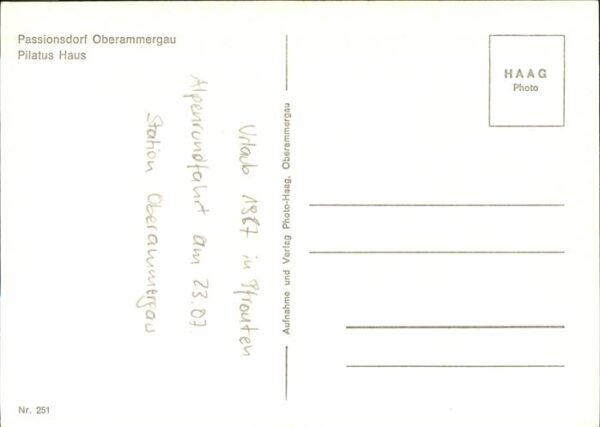 Passionsdorf Oberammergau
Pilatus Haus
Urlaub 1987 in Pfronten
Alpenrundfahrt am 23.07.
Station Oberammergau
Aufnahme und Verlag Photo-Haag, Oberammergau
HAAG
Photo
Nr. 251